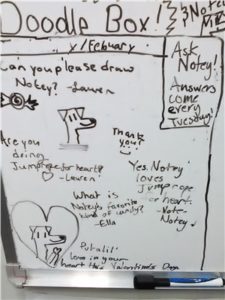 Doodle Box!
y/Febuary
Ask
Notey!
Answers
come
every
Tuesday!
Can you please draw
Notey? -Lauren
Thank
you!
Are you
doing
Jump rope for heart?
-Lauren!
Yes. Notey
loves
Jump rope
for heart.
-Note-
Notey
What is
Notey's favorite
kind of candy?
-Ella
Put a lil'
love in your
heart this Valentines Day